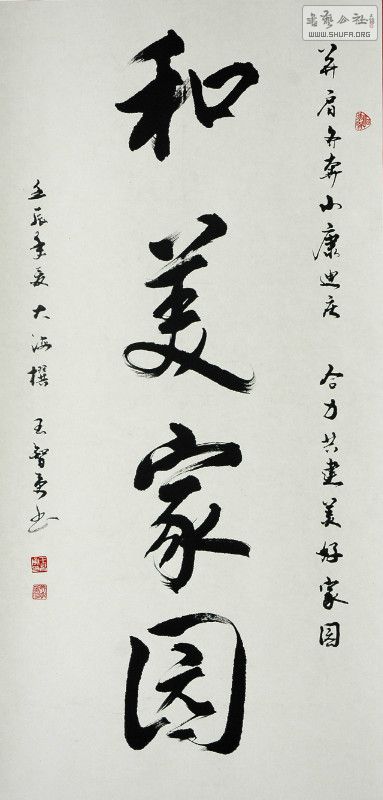 书艺公社
WWW.SHUFA.ORG
并肩奔小康庄 合力共建美好家园
和美家园
壬辰季夏 大海撰 王智勇书